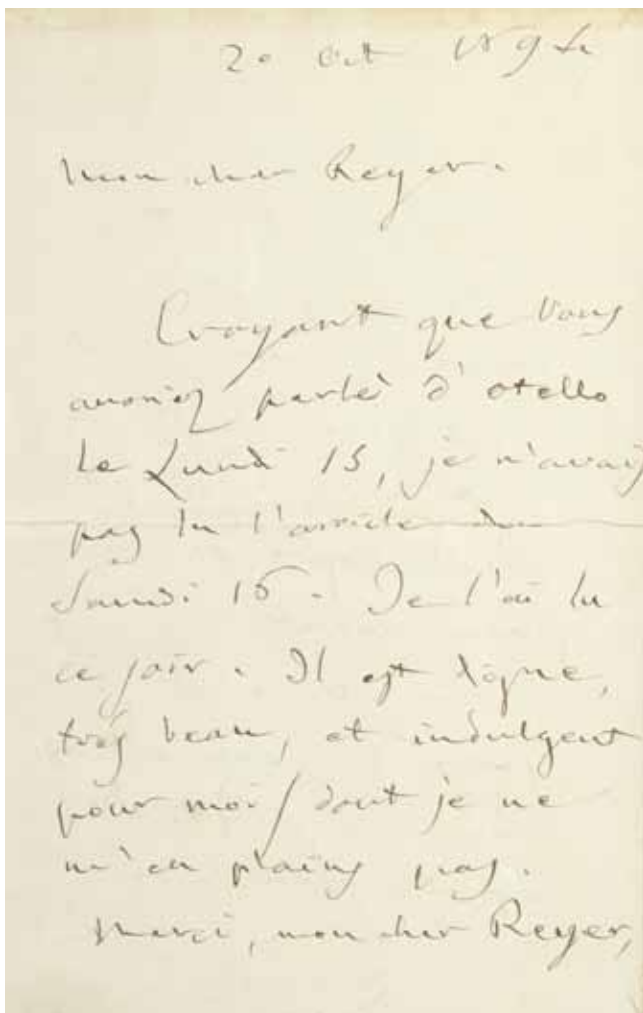 20 oct 1894
Mon cher Reyer.
Croyant que vous
auriez parlé d'otello
le Lundi 15, je n'avais
pas lu l'article du
Samedi
Je l'ai lu
ce soir. Il est digne,
très beau, et indulgent
pour moi / dont je ne
m'en plains pas.
Merci, mon cher Reyer,